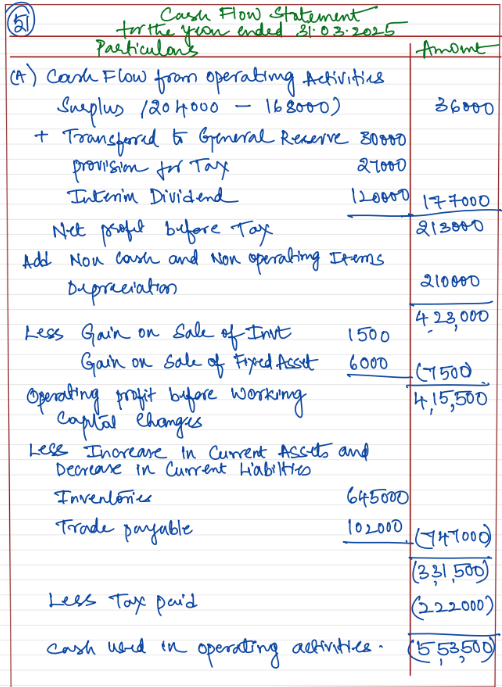 51
Cash Flow Statement
for the year ended 31.03.2025
Particulars Amount
(A) Cash Flow from operating Activities
Surplus (204000 - 168000) 36000
+ Transferred to General Reserve 30000
provision for Tax 27000
Interim Dividend 120000 177000
Net profit before Tax 213000
Add Non cash and Non operating Items
Depreciation 210000
423,000
Less Gain on Sale of Invt 1500
Gain on Sale of Fixed Asset 6000 (7500)
Operating profit before Working 4,15,500
Capital Changes
Less Increase in Current Assets and
Decrease in Current Liabilities
Inventories 645000
Trade payable 102000 (747000)
(331,500)
Less Tax paid (222000)
Cash used in operating activities. (5,53,500)